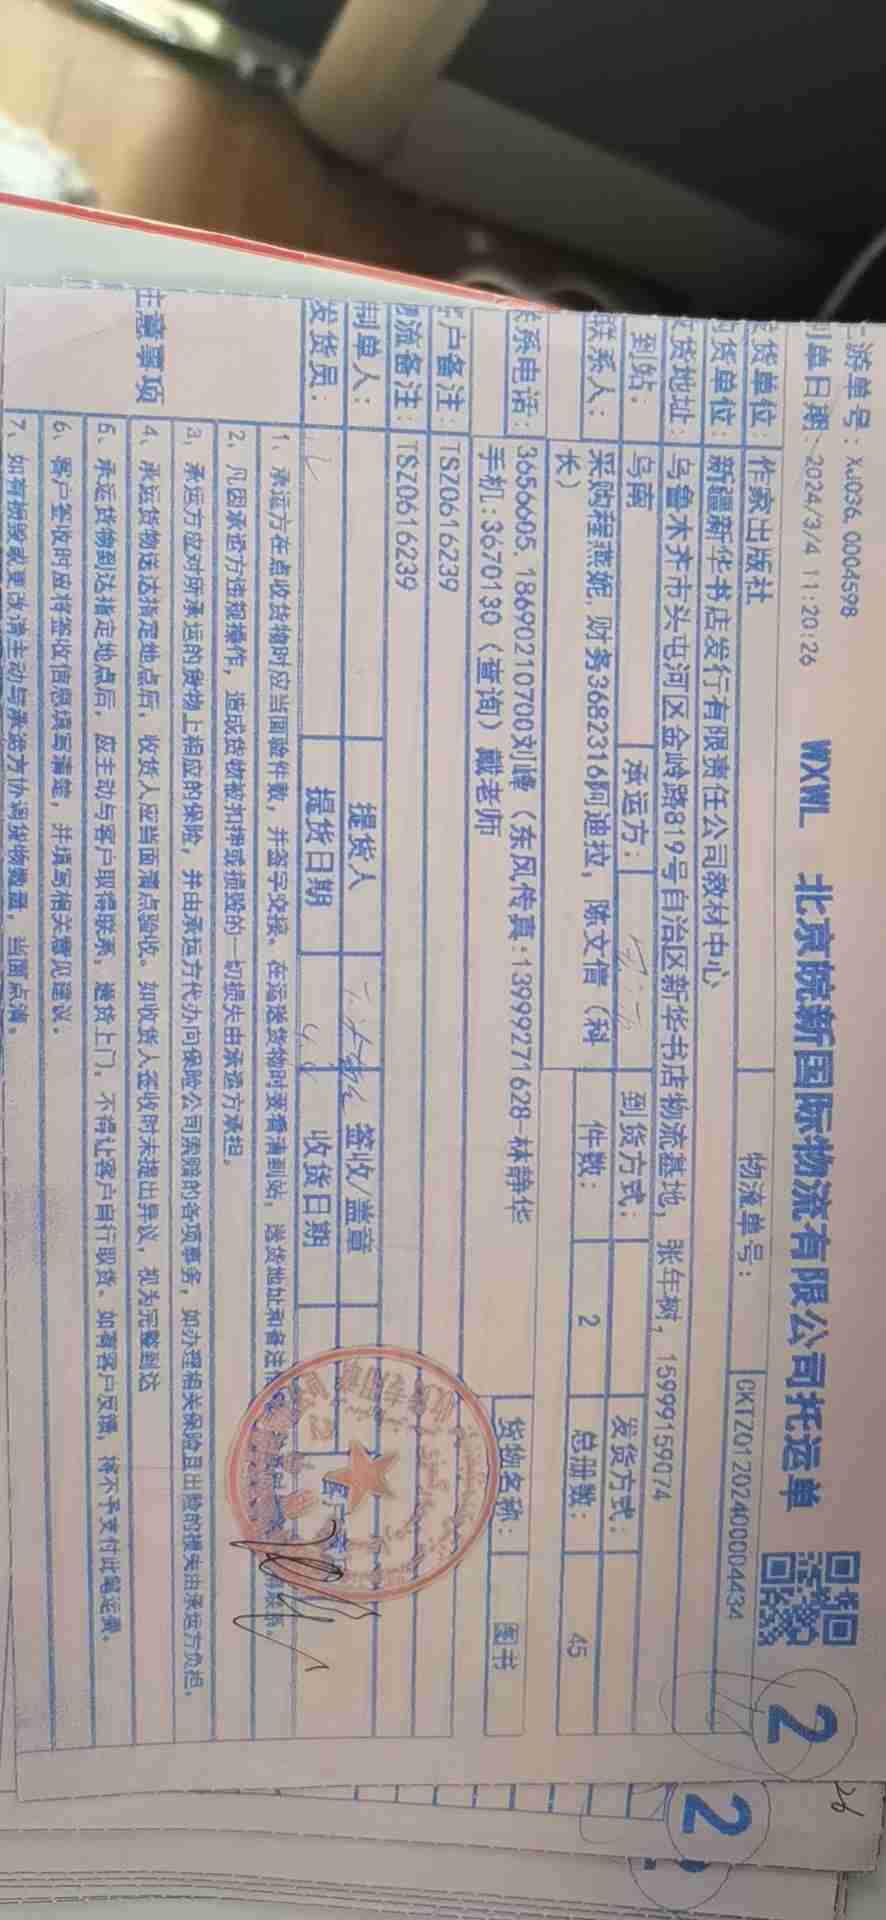 游单号：XJ036, 0004598
单日期：2024/3/4 11:20:26
WXWL 北京皖新国际物流有限公司托运单
2
货单位：作家出版社 物流单号：GKTZ01202400004434
货单位：新疆新华书店发行有限责任公司教材中心
货地址：乌鲁木齐市头屯河区金岭路819号自治区新华书店物流基地，张年树，15999159074
到站：乌南 承运方： 到货方式： 发货方式：
联系人：采购程燕妮，财务3682316阿迪拉，陈文信（科长） 件数：2 总册数：45
系电话：3656605，18690210700刘峰（东风传真：13999271628-林静华
手机：3670130（查询）戴老师 货物名称：图书
户备注：TSZ0616239
流备注：TSZ0616239
制单人： 提货人 签收/盖章
发货员： 提货日期 收货日期
注意事项
1、承运方在点收货物时应当面验件数，并签字交接。在运送货物时要看清到站，送货地址和备注
2、凡因承运方违规操作，造成货物被扣押或损毁的一切损失由承运方承担。
3、承运方应对所承运的货物上相应的保险，并由承运方代办向保险公司索赔的各项事务，如办理相关保险且出险的损失由承运方负担。
4、承运货物送达指定地点后，收货人应当面清点验收。如收货人签收时未提出异议，视为完整到达
5、承运货物到达指定地点后，应主动与客户取得联系，送货上门，不得让客户自行取货。如有客户反馈，将不予支付此笔运费。
6、客户签收时应将签收信息填写清楚，并填写相关意见建议。
7、如有损毁或更改请主动与承运方协调货物数量，当面点清
2